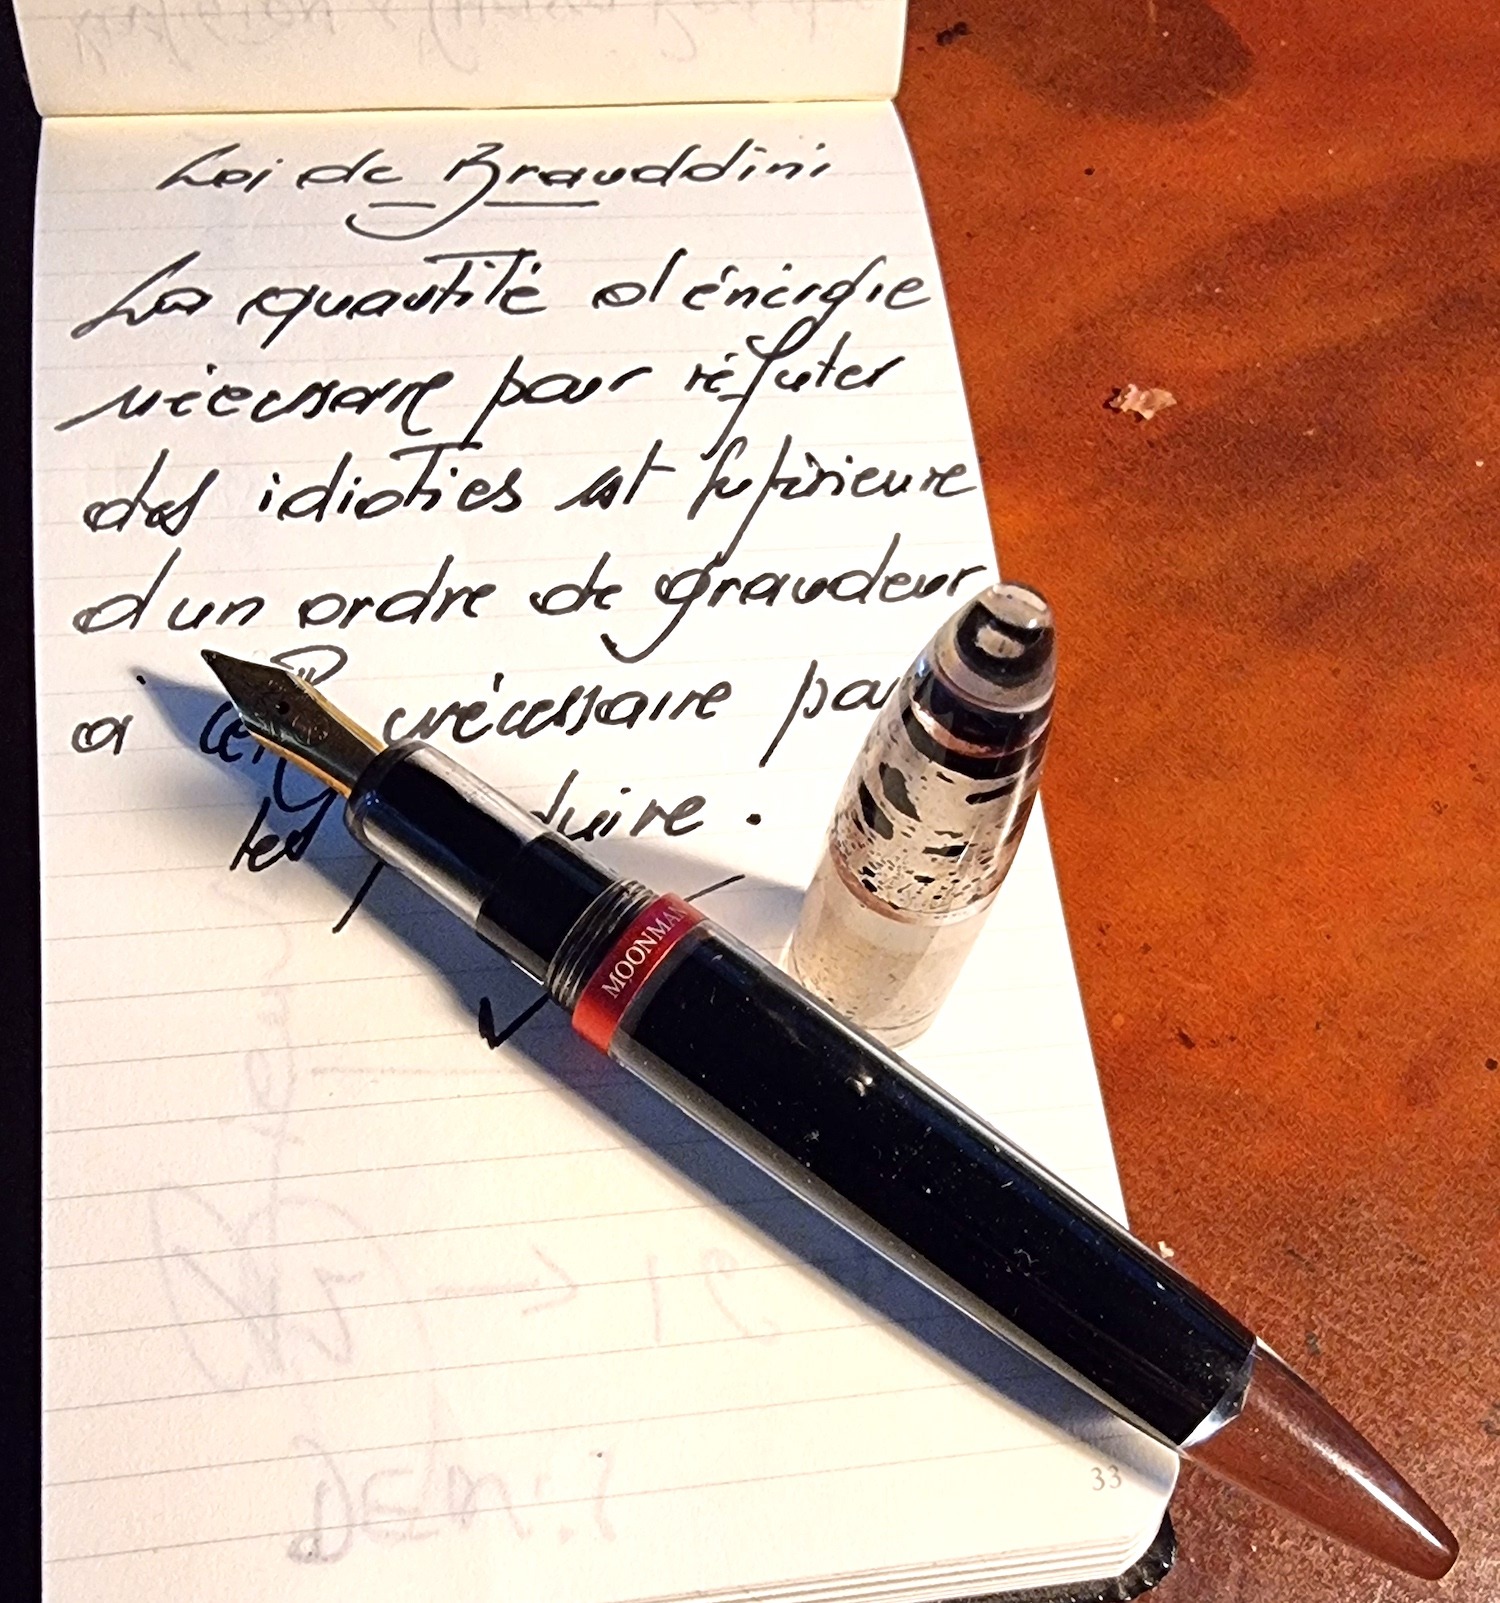 Loi de Brauddini
La quantité d'énergie
nécessaire pour réfuter
des idioties est supérieure
d'un ordre de grandeur
à nécessaire pou
les duire.
MOONMAN
33
DEMi